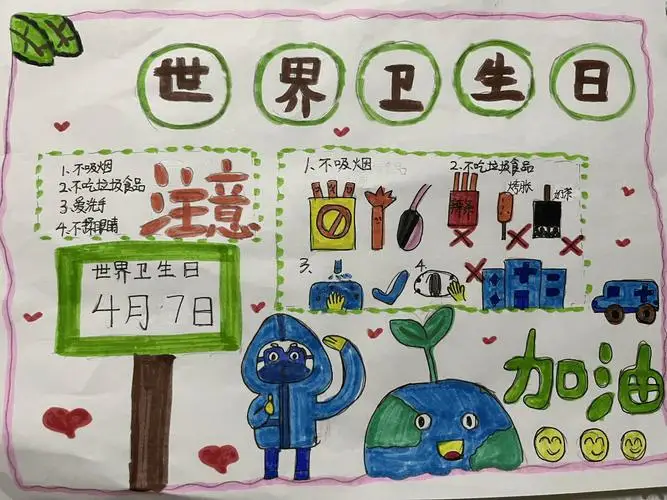 世界卫生日
1、不吸烟
2、不吃垃圾食品
3、爱洗手
4、不揉眼睛
注意
1、不吸烟
2、不吃垃圾食品
辣条
烤肠
奶茶
3、
4、
世界卫生日
4月7日
加油